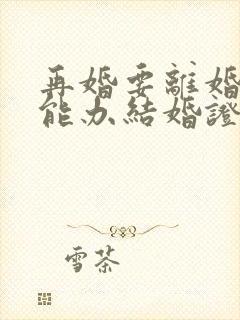 再婚要離婚
能办結婚證
雪茶